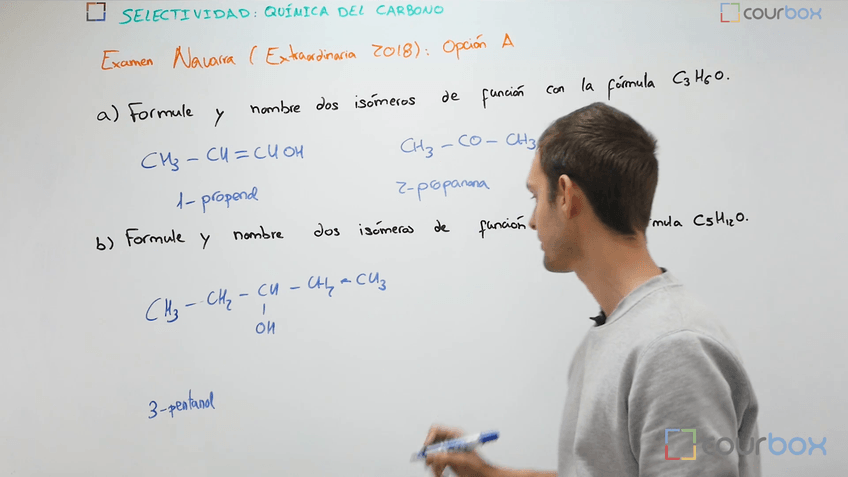 SELECTIVIDAD: QUÍMICA DEL CARBONO
courbox
Examen Navarra (Extraordinaria 2018): Opción A
a) Formule y nombre dos isómeros de función con la fórmula C3H6O.
CH3 - CH = CHOH
CH3 - CO - CH3
1-propenol
2-propanona
b) Formule y nombre dos isómeros de función C5H12O.
CH3 - CH2 - CH - CH2 - CH3
OH
3-pentanol
courbox